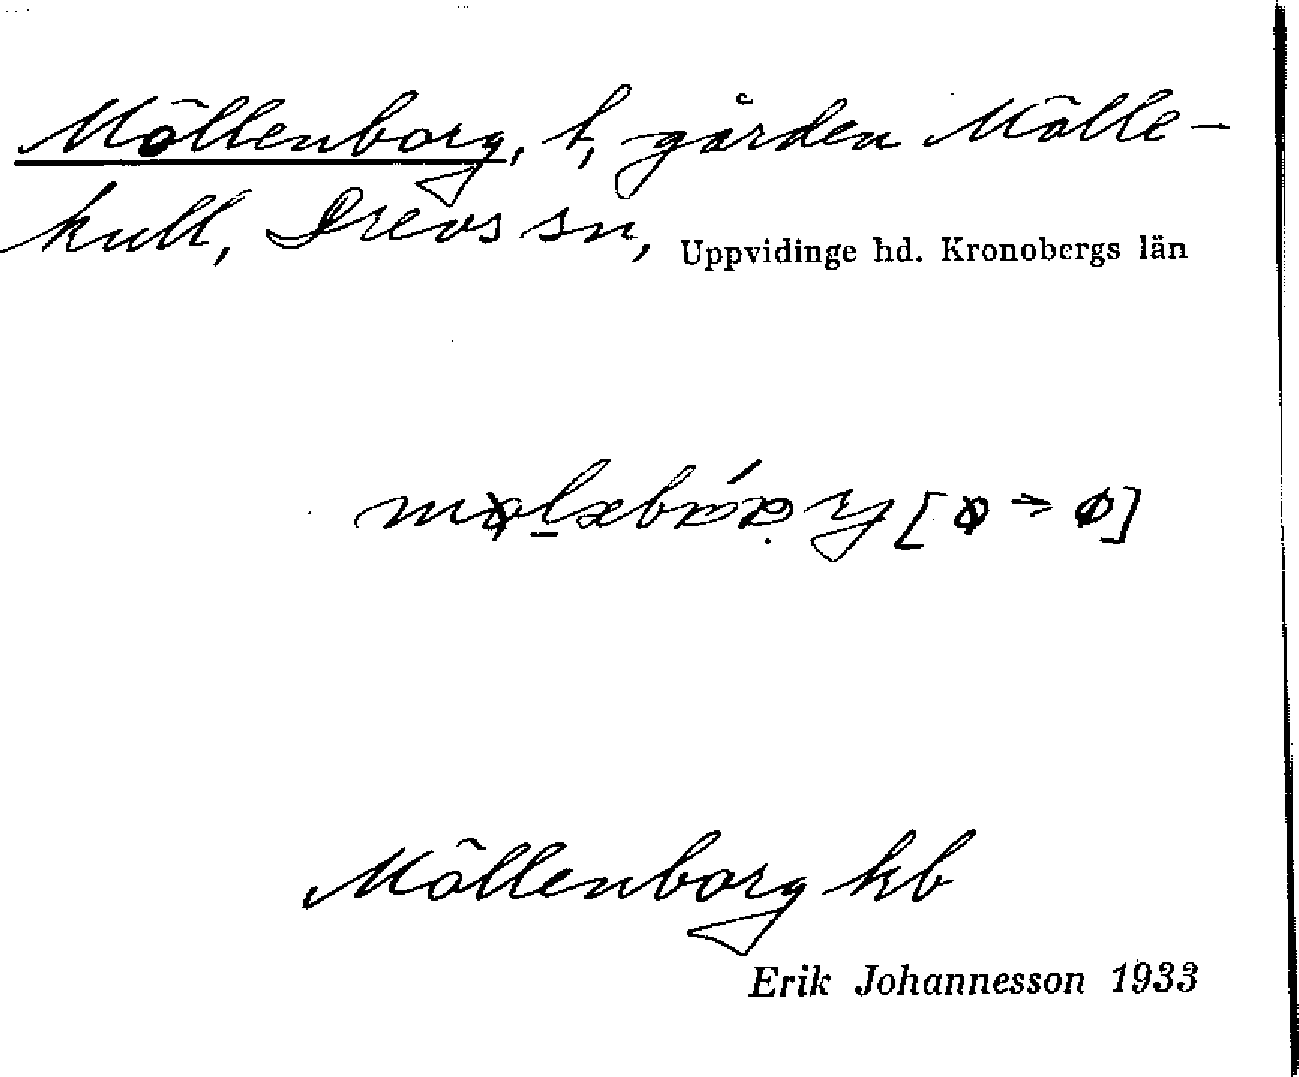 Möllenborg, t, gården Mölle-
kull, Drevs sn, Uppvidinge hd. Kronobergs län
Möllenborg kb
Erik Johannesson 1933